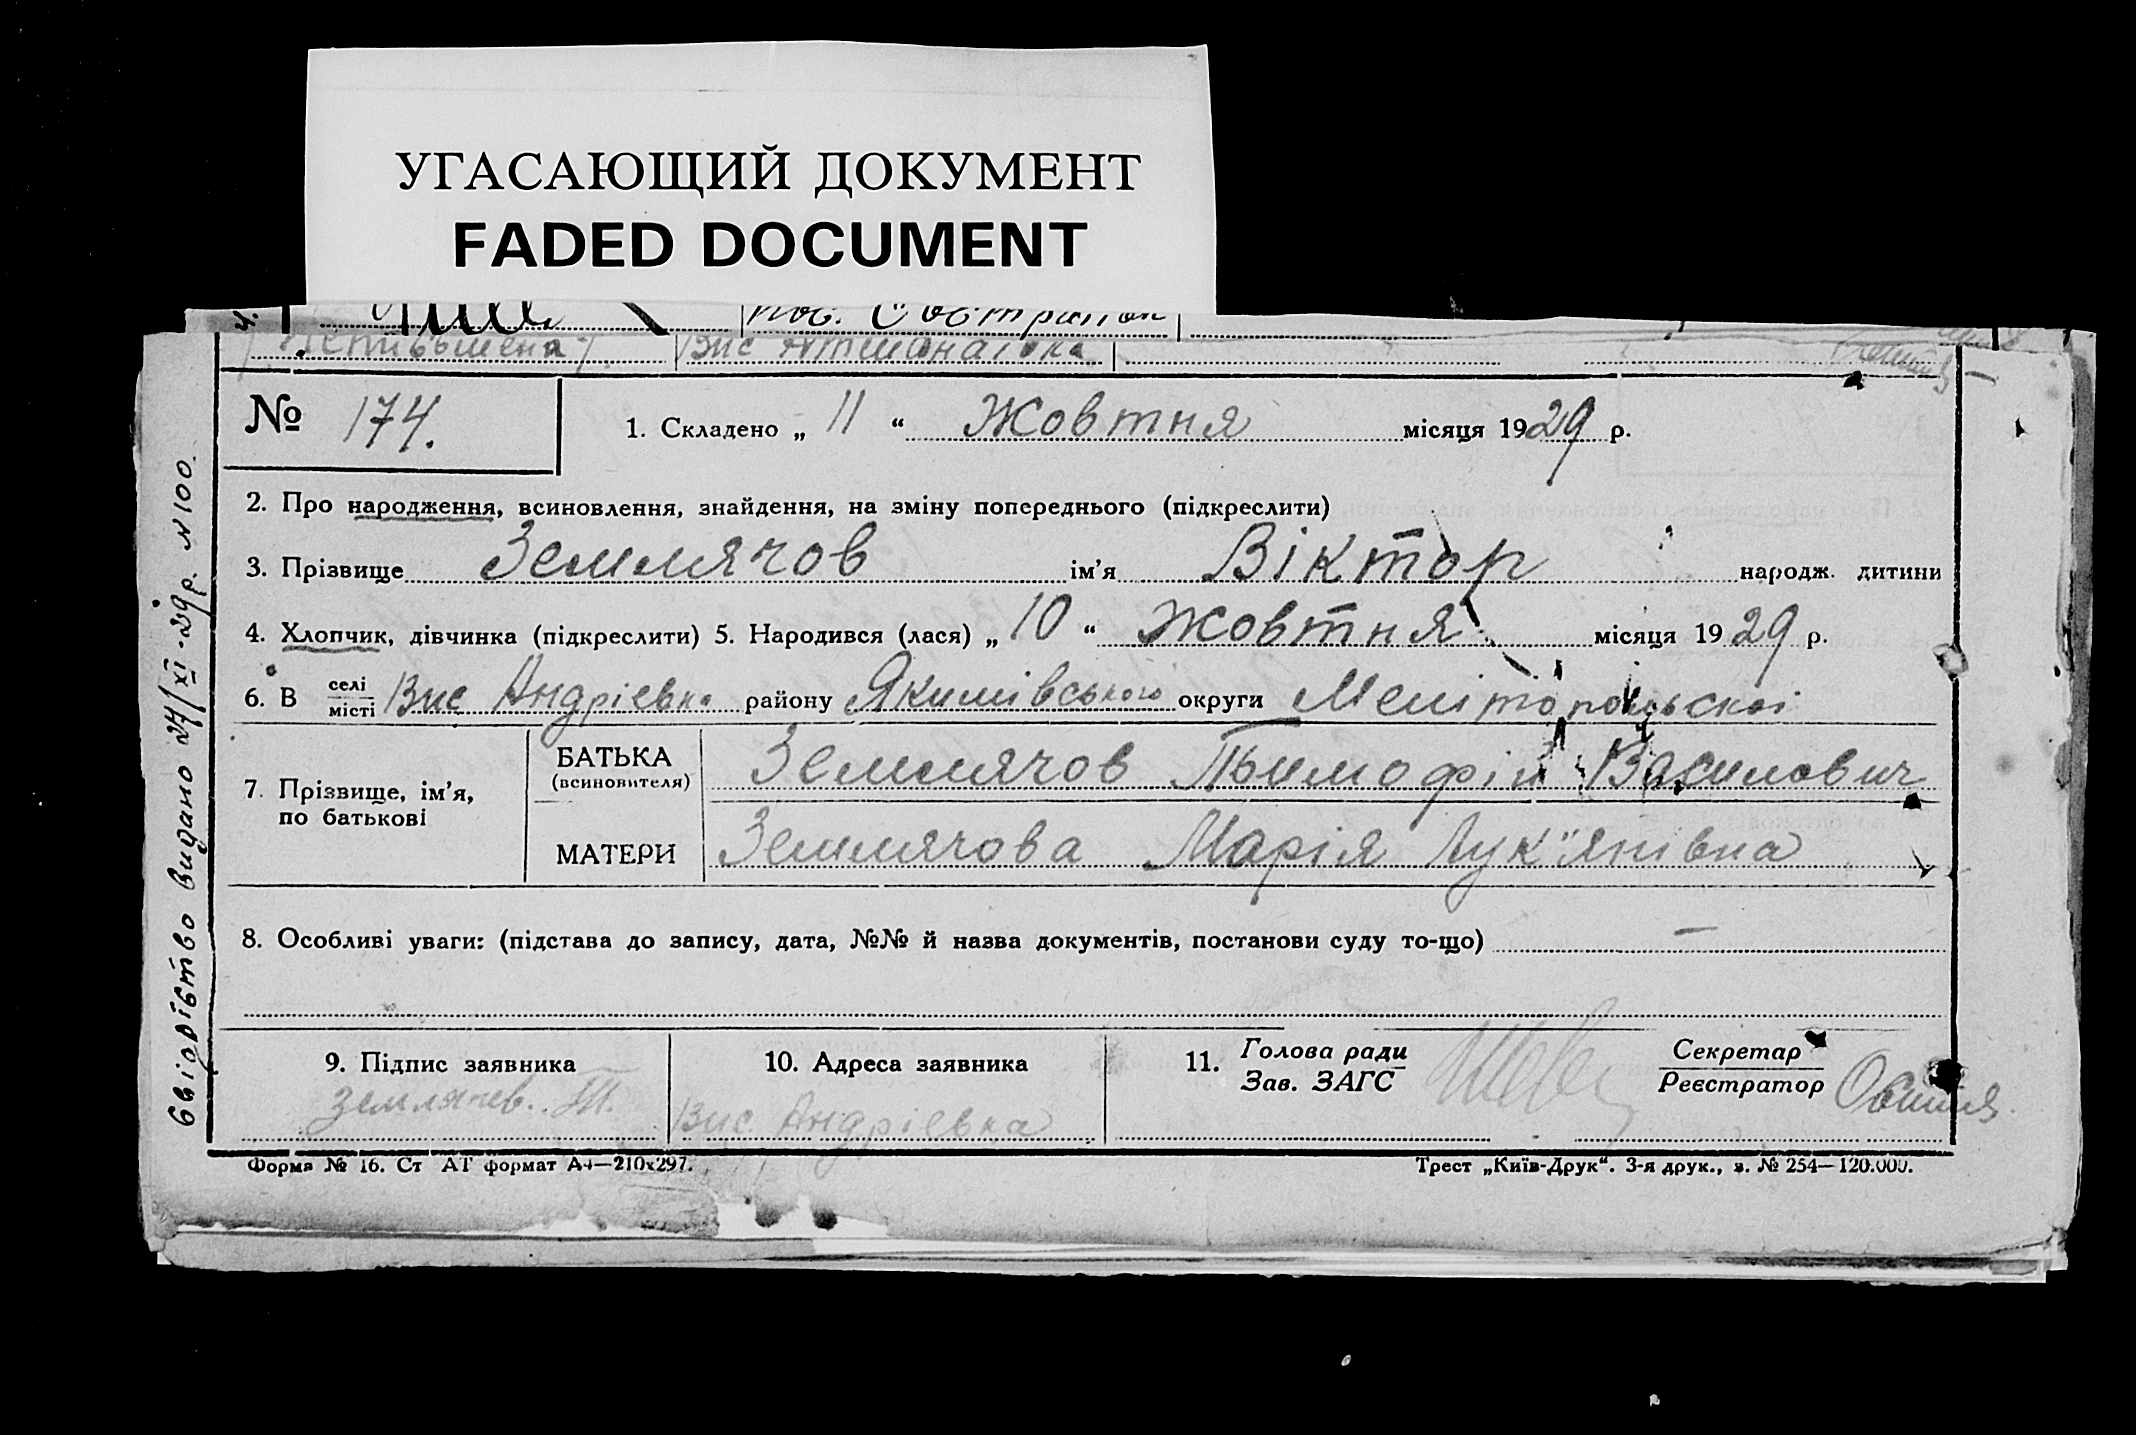 УГАСАЮЩИЙ ДОКУМЕНТ
FADED DOCUMENT
№ 174.
1. Складено „ 11 “ Жовтня місяця 1929 р.
2. Про народження, всиновлення, знайдення, на зміну попереднього (підкреслити)
3. Прізвище Землячов ім’я Віктор народж. дитини
4. Хлопчик, дівчинка (підкреслити) 5. Народився (лася) „ 10 “ Жовтня місяця 1929 р.
6. В селі місті Вис Андріевка району Якимівського округи Мелітопольскоі
7. Прізвище, ім’я, по батькові
БАТЬКА (всиновителя) Землячов Тьимофій Василович
МАТЕРИ Землячова Марія Лук"янівна
8. Особливі уваги: (підстава до запису, дата, №№ й назва документів, постанови суду то-що) —
9. Підпис заявника
Землячев. Т.
10. Адреса заявника
Вис Андріевка
11. Голова ради
Зав. ЗАГС
Секретар
Реєстратор
Форма № 16. Ст АТ формат А4—210х297.
Трест „Київ-Друк“. 3-я друк., з. № 254—120.000.
Свідоцтво видано 27/XI-29р. №100.